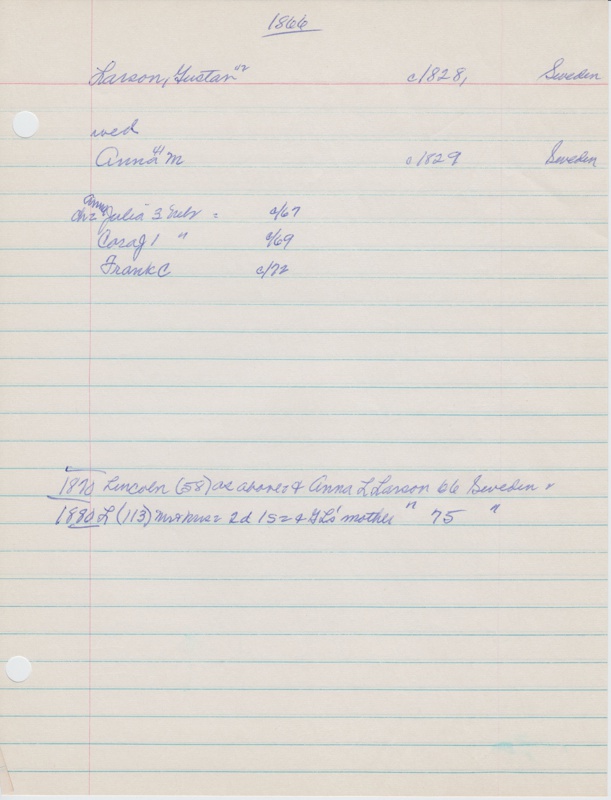 1866
Larson, Gustan 42 c1828, Sweden
wed
Anna M 41 c1829 Sweden
Anna
ch= Julia 3 Neb = c/67
Cora J 1 " c/69
Frank C c/72
1870 Lincoln (58) as above & Anna L Larson 66 Sweden
1880 L (113) Mr & Mrs = 2d 1s = & GLs' mother " 75 "